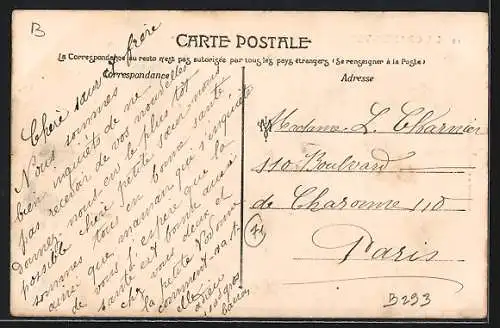 B
CARTE POSTALE
La Correspondance au recto n'est pas autorisée par tous les pays étrangers (Se renseigner à la Poste)
Correspondance
Adresse
Chère sœur et frère
Nous sommes
bien inquiets de ne
pas recevoir de vos nouvelles
donnez nous en le plus tôt
possible chère petite sœur nous
sommes tous en bonne santé,
ainsi que maman qui s'inquiète
de vous j'espère que la
santé est bonne aussi
chez vous deux et
la petite
comment va-t-
elle
adieu
bons gros
baisers
Madame L. Charnier
110 Boulvard
de Charonne 110
Paris
71
B293